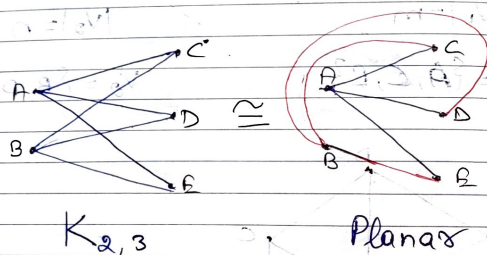 A B C D E ≅ A B C D E
K2,3 Planar